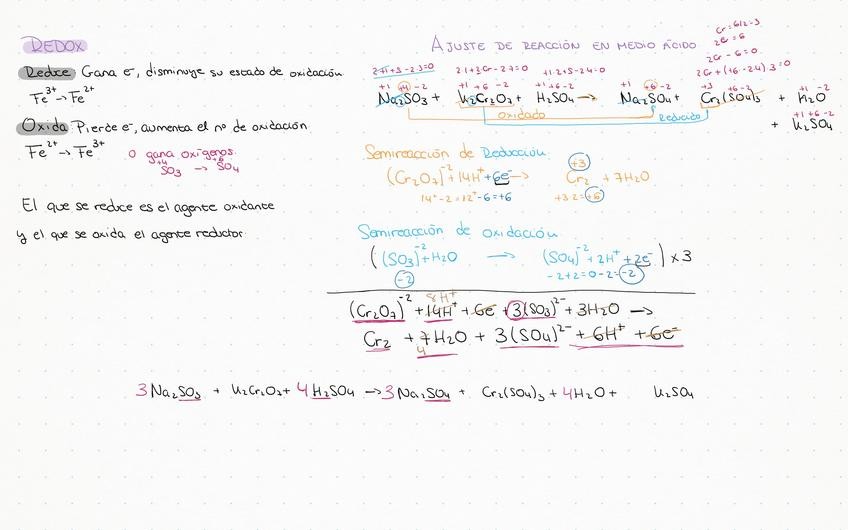 REDOX
Reduce Gana e⁻, disminuye su estado de oxidación
Fe³⁺ → Fe²⁺
Oxida Pierde e⁻, aumenta el nº de oxidación
Fe²⁺ → Fe³⁺
O gana oxígenos:
+4 +6
SO₃ → SO₄
El que se reduce es el agente oxidante
y el que se oxida el agente reductor.
AJUSTE DE REACCIÓN EN MEDIO ÁCIDO
Cr = 6/2 = 3
2Cr = 6
2Cr - 6 = 0
2Cr + (+6 - 2·4)·3 = 0
2·1 + S - 2·3 = 0
2·1 + 2Cr - 2·7 = 0
+1·2 + S - 2·4 = 0
+1 +4 -2 +1 +6 -2 +1 +6 -2 +1 +6 -2 +3 +6 -2 +1 -2
Na₂SO₃ + K₂Cr₂O₇ + H₂SO₄ → Na₂SO₄ + Cr₂(SO₄)₃ + H₂O
Oxidado
Reducido
+1 +6 -2
+ K₂SO₄
Semireacción de Reducción:
+3
(Cr₂O₇)⁻² + 14H⁺ + 6e⁻ → Cr₂ + 7H₂O
14⁺ - 2 = 12⁺ - 6 = +6
+3·2 = +6
Semireacción de oxidación
((SO₃)⁻² + H₂O → (SO₄)⁻² + 2H⁺ + 2e⁻) x3
-2
-2 + 2 = 0 - 2 = -2
8H⁺
(Cr₂O₇)⁻² + 14H⁺ + 6e⁻ + 3(SO₃)²⁻ + 3H₂O →
Cr₂ + 7H₂O + 3(SO₄)²⁻ + 6H⁺ + 6e⁻
4
3Na₂SO₃ + K₂Cr₂O₇ + 4H₂SO₄ → 3Na₂SO₄ + Cr₂(SO₄)₃ + 4H₂O + K₂SO₄